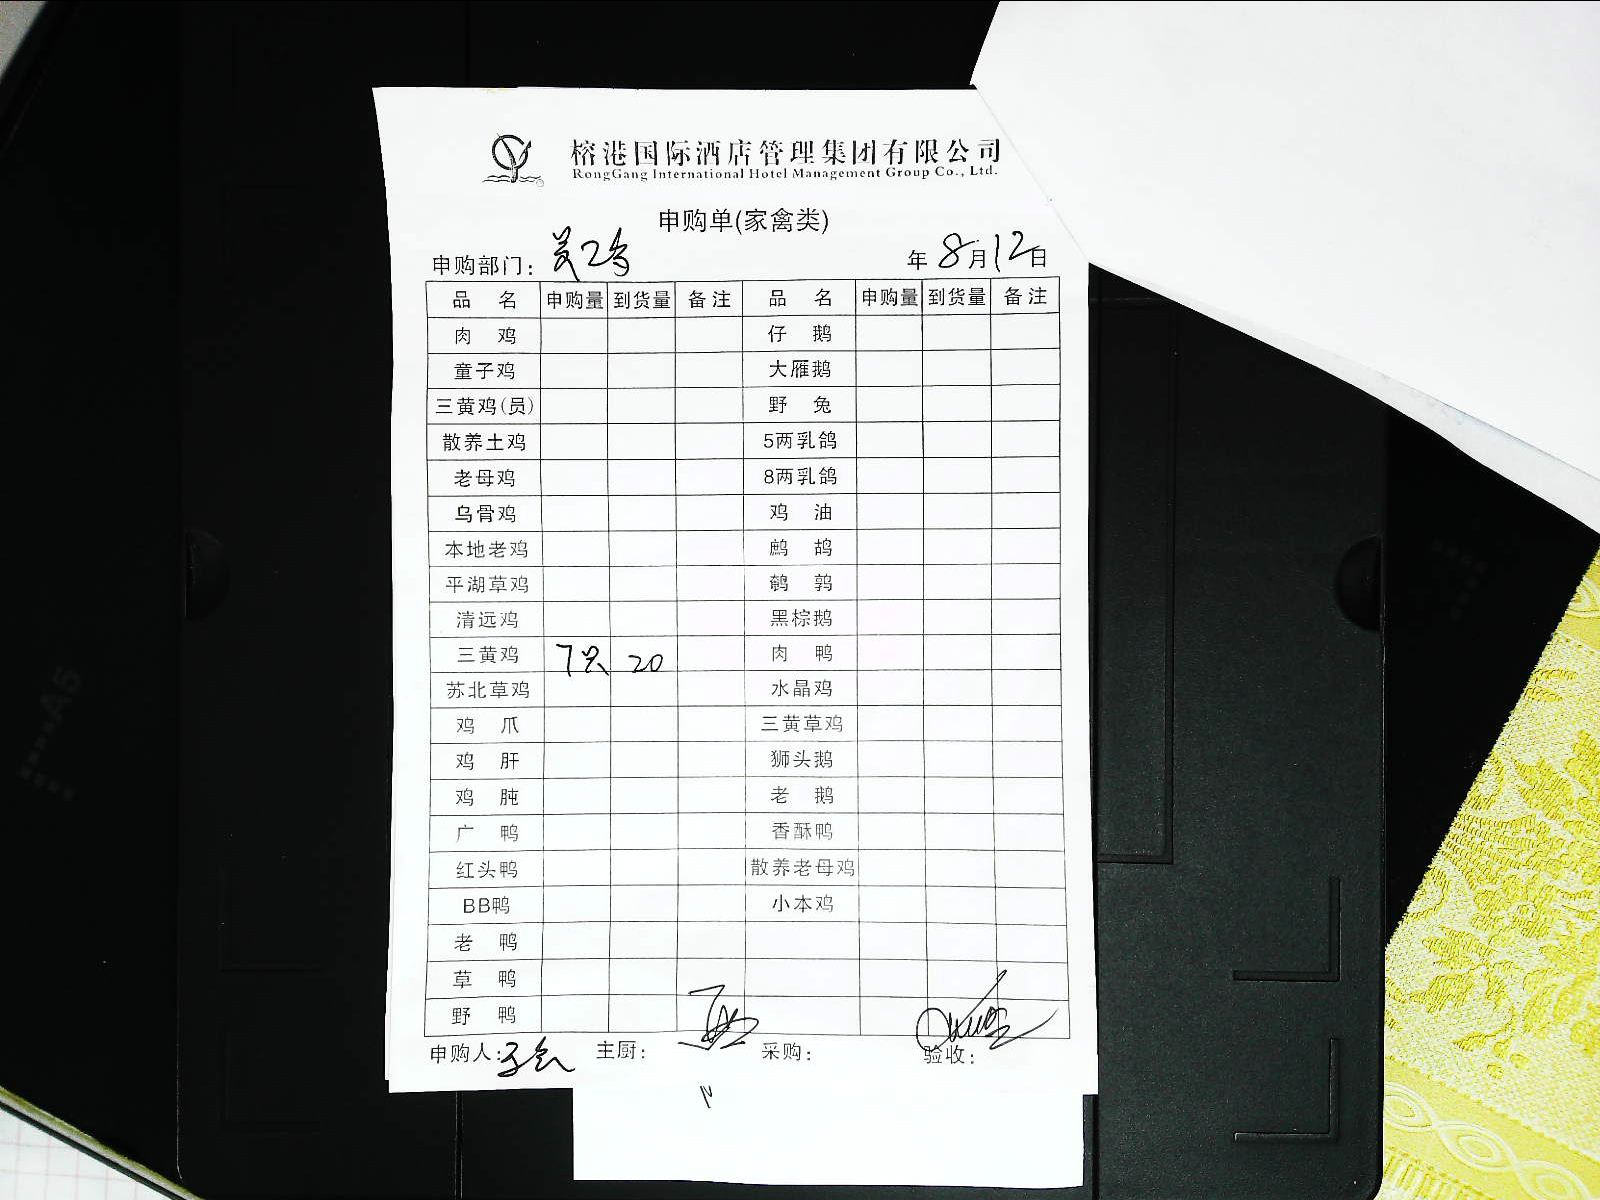 榕港国际酒店管理集团有限公司
RongGang International Hotel Management Group Co., Ltd.
申购单(家禽类)
申购部门: 年8月12日
品名 申购量 到货量 备注 品名 申购量 到货量 备注
肉鸡 仔鹅
童子鸡 大雁鹅
三黄鸡(员) 野兔
散养土鸡 5两乳鸽
老母鸡 8两乳鸽
乌骨鸡 鸡油
本地老鸡 鹧鸪
平湖草鸡 鹌鹑
清远鸡 黑棕鹅
三黄鸡 7只 20 肉鸭
苏北草鸡 水晶鸡
鸡爪 三黄草鸡
鸡肝 狮头鹅
鸡肫 老鹅
广鸭 香酥鸭
红头鸭 散养老母鸡
BB鸭 小本鸡
老鸭
草鸭
野鸭
申购人: 主厨: 采购: 验收: